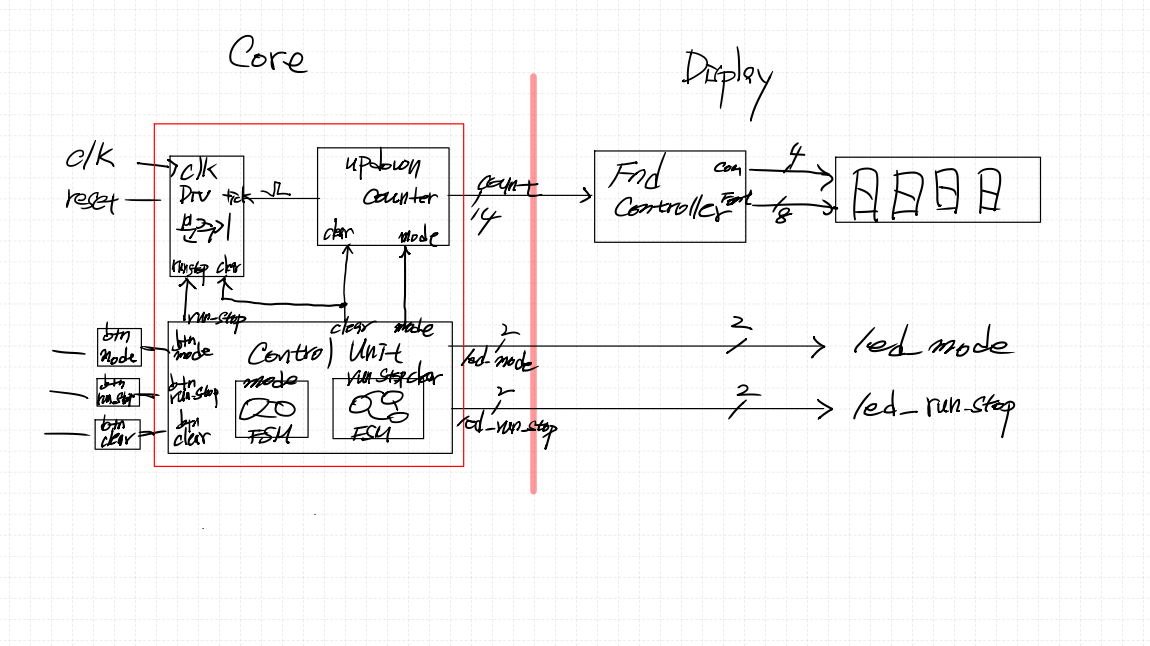 Core
Display
clk
reset
clk
Div
tick
분주기
run stop
clear
updown
counter
clear
mode
count
14
Fnd
Controller
com
Font
4
8
run-stop
clear
mode
btn
mode
btn
run-stop
btn
clear
btn
mode
btn
run-stop
btn
clear
Control Unit
mode
FSM
run stop clear
FSM
2
led_mode
2
led_run_stop
2
led_mode
2
led_run_stop